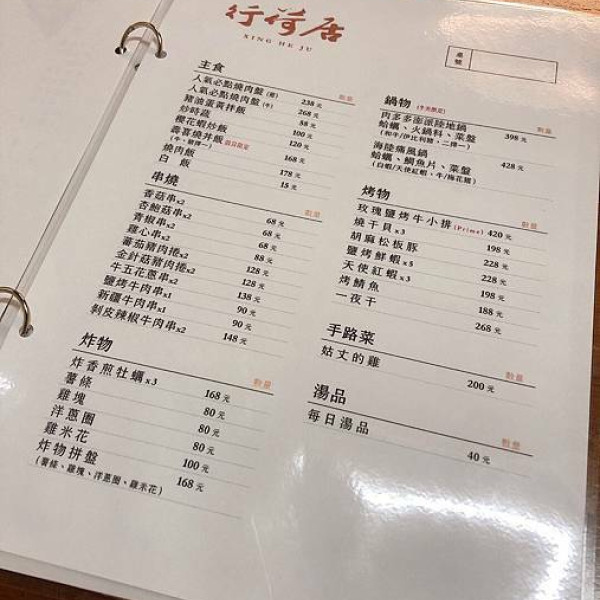 行荷居
XING HE JU
桌號
主食 數量
人氣必點燒肉盤(豬) 238元
人氣必點燒肉盤(牛) 268元
豬油蛋黃拌飯 88元
炒時蔬 100元
櫻花蝦炒飯 120元
壽喜燒丼飯 168元
(牛、豬擇一)
燒肉飯 178元
白飯 15元
串燒 數量
香菇串x2 68元
杏鮑菇串x2 68元
青椒串x2 68元
雞心串x2 88元
蕃茄豬肉捲x2 128元
金針菇豬肉捲x2 128元
牛五花蔥串x2 138元
鹽烤牛肉串x1 90元
新疆牛肉串x1 90元
剝皮辣椒牛肉串x2 148元
炸物 數量
炸香煎牡蠣x3 168元
薯條 80元
雞塊 80元
洋蔥圈 80元
雞米花 100元
炸物拼盤 168元
(薯條、雞塊、洋蔥圈、雞米花)
鍋物 數量
肉多多澎派陸地鍋 398元
蛤蠣、火鍋料、菜盤
(和牛/伊比利豬、二擇一)
海陸痛風鍋 428元
蛤蠣、鯛魚片、菜盤
(白蝦/天使紅蝦、牛/梅花豬)
烤物 數量
玫瑰鹽烤牛小排(Prime) 420元
燒干貝x3 198元
胡麻松板豚 228元
鹽烤鮮蝦x5 228元
天使紅蝦x3 198元
烤鯖魚 188元
一夜干 268元
手路菜 數量
姑丈的雞 200元
湯品 數量
每日湯品 40元